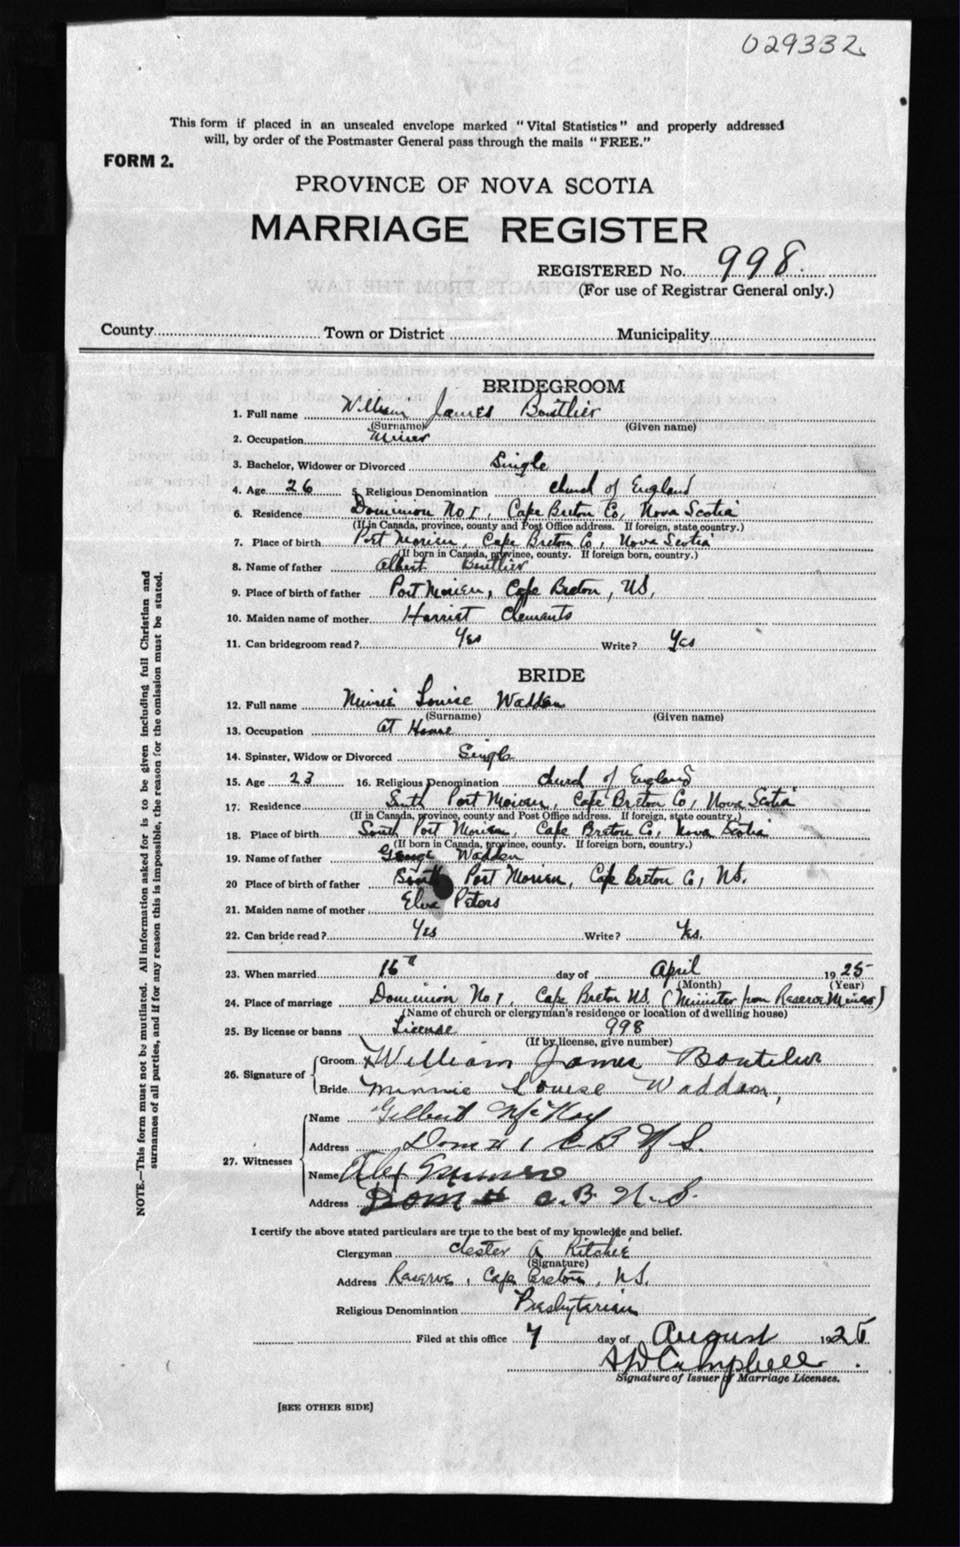 029332
This form if placed in an unsealed envelope marked "Vital Statistics" and properly addressed
will, by order of the Postmaster General pass through the mails "FREE."
FORM 2.
PROVINCE OF NOVA SCOTIA
MARRIAGE REGISTER
REGISTERED No. 998
(For use of Registrar General only.)
County Town or District Municipality
BRIDEGROOM
1. Full name William James Boutlier
(Surname) (Given name)
2. Occupation Miner
3. Bachelor, Widower or Divorced Single
4. Age 26 5. Religious Denomination Church of England
6. Residence Dominion No 1, Cape Breton Co, Nova Scotia
(If in Canada, province, county and Post Office address. If foreign, state country.)
7. Place of birth Port Morien, Cape Breton Co, Nova Scotia
(If born in Canada, province, county. If foreign born, country.)
8. Name of father Albert Boutlier
9. Place of birth of father Port Morien, Cape Breton, NS.
10. Maiden name of mother Harriet Clements
11. Can bridegroom read? Yes Write? Yes
BRIDE
12. Full name Minnie Louise Wadden
(Surname) (Given name)
13. Occupation At Home
14. Spinster, Widow or Divorced Single
15. Age 23 16. Religious Denomination Church of England
17. Residence South Port Morien, Cape Breton Co, Nova Scotia
(If in Canada, province, county and Post Office address. If foreign, state country.)
18. Place of birth South Port Morien, Cape Breton Co, Nova Scotia
(If born in Canada, province, county. If foreign born, country.)
19. Name of father George Wadden
20 Place of birth of father South Port Morien, Cape Breton Co, NS.
21. Maiden name of mother Peters
22. Can bride read? Yes Write? Yes.
23. When married 16th day of April 1925
(Month) (Year)
24. Place of marriage Dominion No 1, Cape Breton NS. (Minister from Reserve Mines)
(Name of church or clergyman's residence or location of dwelling house)
25. By license or banns License 998
(If by license, give number)
26. Signature of Groom William James Boutilier
Bride Minnie Louise Wadden,
27. Witnesses Name Gilbert McKay
Address Dom # 1 C B N S.
Name Alex Munro
Address Dom # C.B. N.S.
I certify the above stated particulars are true to the best of my knowledge and belief.
Clergyman Lester A Ritchie
(Signature)
Address Reserve, Cape Breton, NS.
Religious Denomination Presbyterian
Filed at this office 7 day of August 1925
Campbell
Signature of Issuer of Marriage Licenses.
[SEE OTHER SIDE]
NOTE.—This form must not be mutilated. All information asked for is to be given including full Christian and
surnames of all parties, and if for any reason this is impossible, the reason for the omission must be stated.